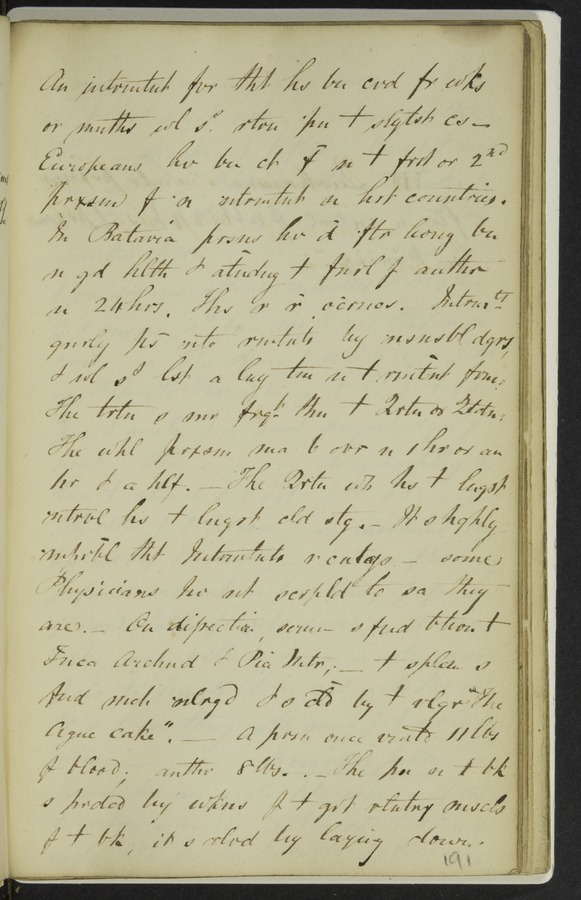 An intrmtnt fvr tht hs bn crd fr wks
or mnths wl sd. rtrn frm t slgtst cs —
Europeans hv bn ct f n t frst or 2nd
prxsm f n ntrmtnt n hot countries.
In Batavia prsns hv d ftr hvng bn
n gd hlth & atndng t fnrl f anthr
n 24 hrs. Ths r r ocrncs. Intrmts
gnrly ps nto rmtnts by nsnsbl dgrs,
& wl sd lst a lng tm n t rmtnt frm.
The trtn s mr frqt thn t Qrtn or Qtdn.
The whl prxsm ma b ovr n 1 hr or an
hr & a hlf. — The Qrtn wh hs t lngst
ntrvl hs t lngst cld stg. — It s highly
mprbbl tht Intrmtnts r cntgs — some
Physicians hv nt scrpld to sa they
are. — On disectn, serum s fnd btwn t
Inca Archnd & Pia Mtr; — t spleen s
fnd mch nlrgd & s cld by t vlgr "The
Ague cake". — A prsn once vmtd 11 lbs
of blood; anthr 8 lbs. — The pn n t bk
s prdcd by wkns f t grt vlntry muscls
f t bk, it s rlvd by laying down.
191